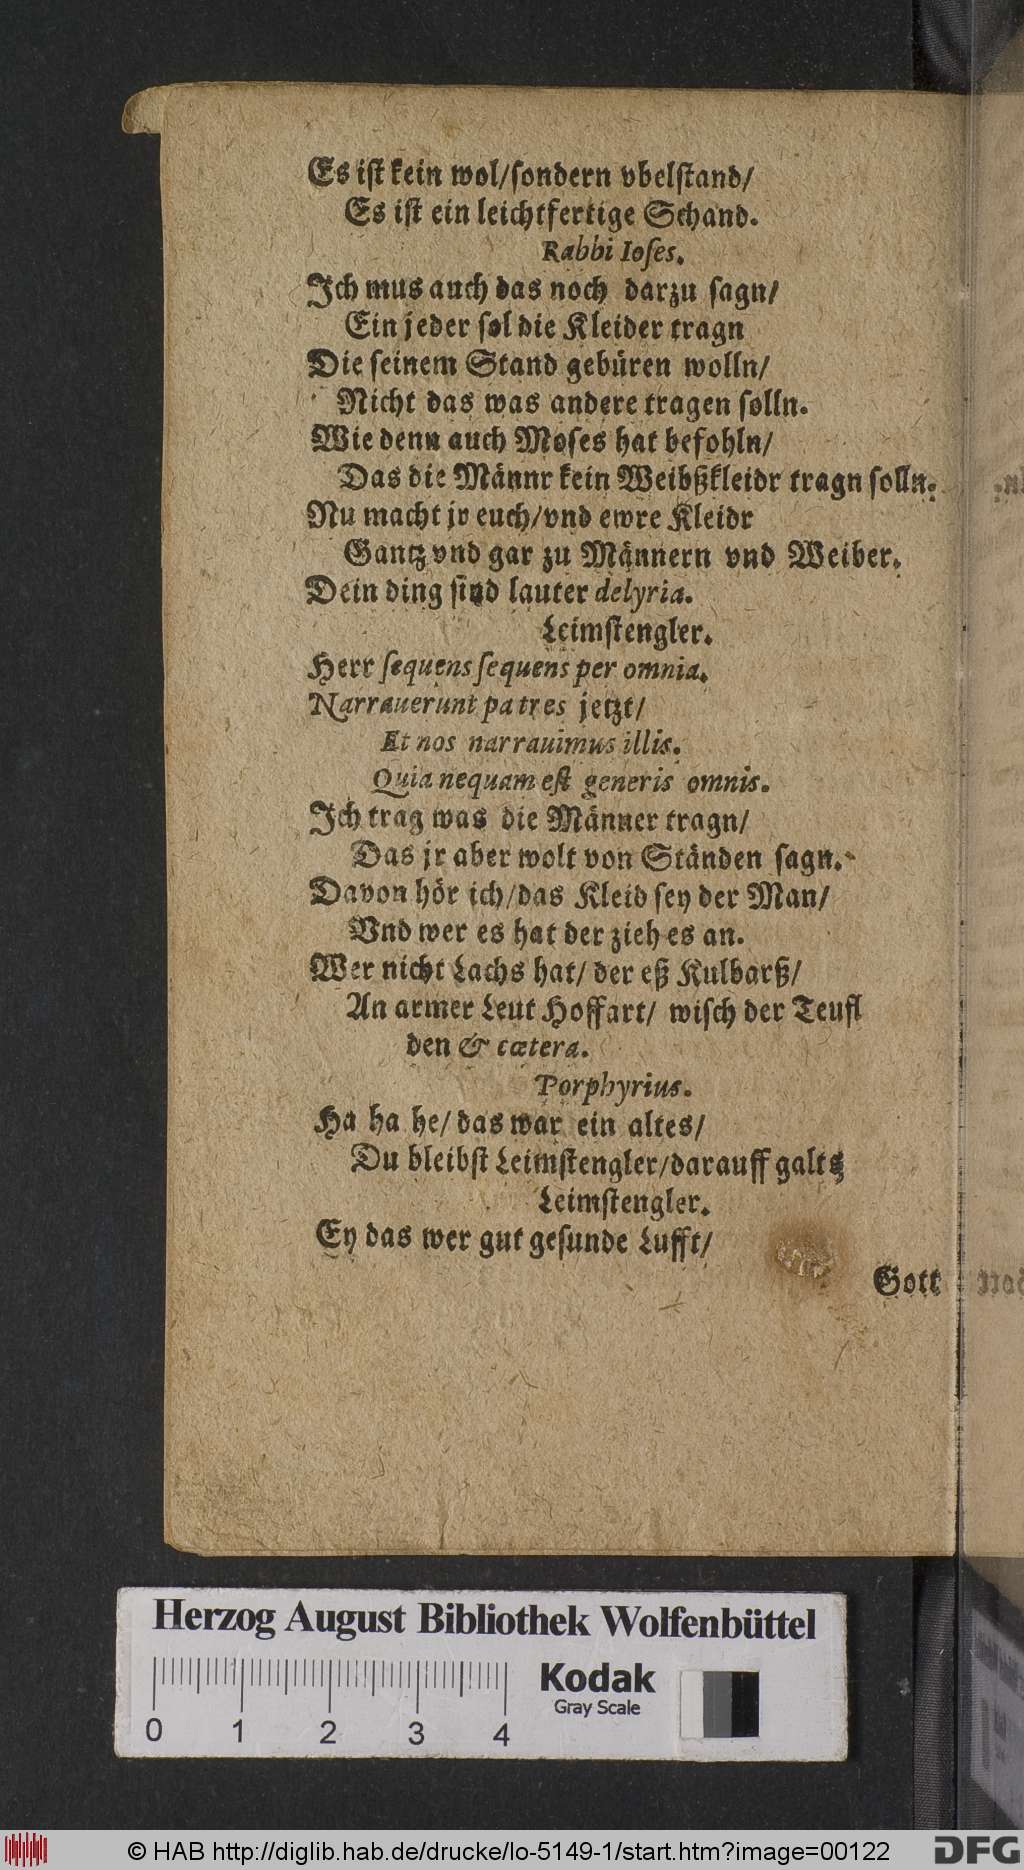 Es iſt kein wol/ſondern vbelſtand/
Es iſt ein leichtfertige Schand.
Rabbi Ioſes.
Ich mus auch das noch darzu ſagn/
Ein jeder ſol die Kleider tragn
Die ſeinem Stand gebüren wolln/
Nicht das was andere tragen ſolln.
Wie denn auch Moſes hat befohln/
Das die Männr kein Weibßkleidr tragn ſolln.
Nu macht jr euch/vnd ewre Kleidr
Gantz vnd gar zu Männern vnd Weiber.
Dein ding ſind lauter delyria.
Leimſtengler.
Herr ſequens ſequens per omnia.
Narrauerunt patres jetzt/
Et nos narrauimus illis.
Quia nequam eſt generis omnis.
Ich trag was die Männer tragn/
Das jr aber wolt von Ständen ſagn.
Davon hör ich/das Kleid ſey der Man/
Vnd wer es hat der zieh es an.
Wer nicht Lachs hat/ der eß Kulbarß/
An armer Leut Hoffart/ wiſch der Teufl
den & cætera.
Porphyrius.
Ha ha he/ das war ein altes/
Du bleibſt Leimſtengler/darauff galts
Leimſtengler.
Ey das wer gut geſunde Lufft/
Gott
Herzog August Bibliothek Wolfenbüttel
Kodak
Gray Scale
0 1 2 3 4
© HAB http://diglib.hab.de/drucke/lo-5149-1/start.htm?image=00122
DFG